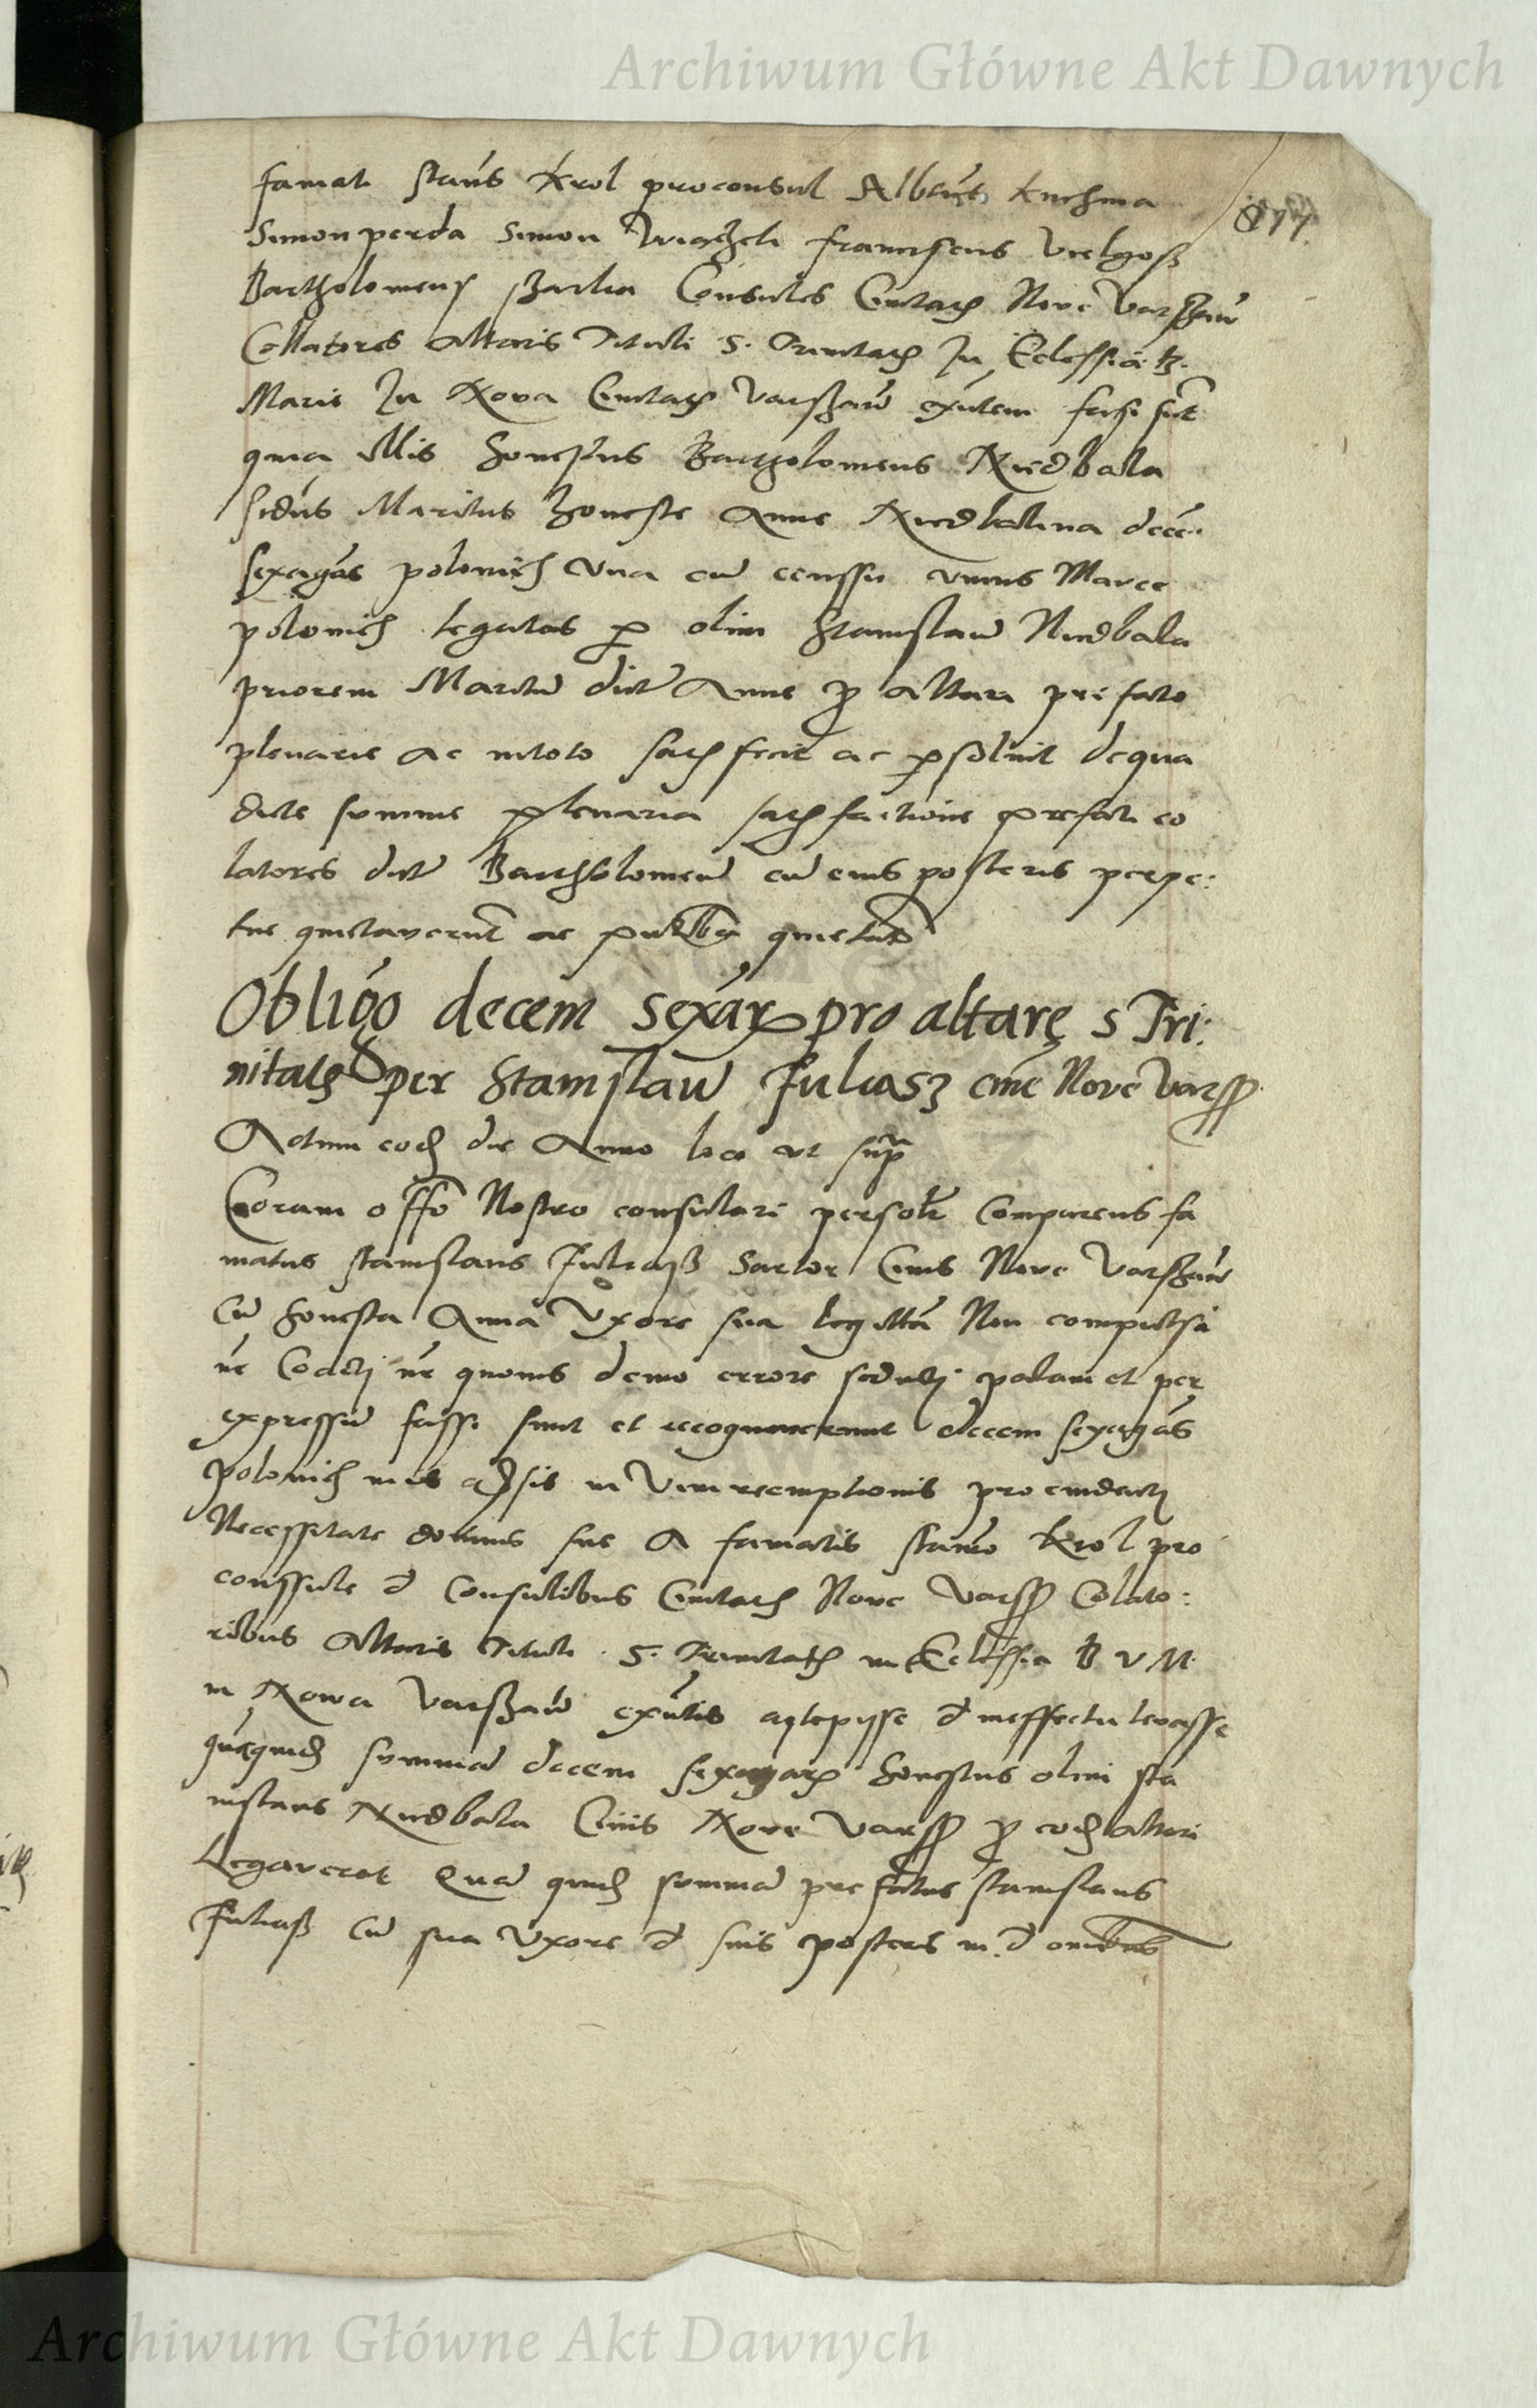 Archiwum Główne Akt Dawnych
famati Stan̄s Krol proconsul Albt̄us Kuchma
Simon perda Simon Franciscus Vielgosz
Bartholomeus Consules Civitatis Nove Varschaū
Collatores altaris Tituli S. Trinitatis In Eclessia B.
Marie In Nova Civitate Varschaū exn̄tem fassi sūt
quia illis honestus Bartholomeus Niedbala
secd̄us Maritus honeste Anne Niedbalina decē
sexagēas polonicales Una cū censsu unius Marce
polonicalis legatas per olim Stanislaū Niedbala
priorem Maritū dicte Anne pro altari prefato
plenarie ac intoto satisfecit ac persolvit dequa
dicte summe plenaria satisfactione prefati co
latores dictū Bartholomeū cū eius posteris perpe:
tue quietaverūt ac quietatū
Obligō decem sexār pro altare S Tri:
nitatis per Stanislaū Juliasz civē Nove Varss
Actum eodem die Anno loco ut supra
Coram offō Nostro consulari personlr Comparens fa
matus Stanislaus Juliasz Sartor Civis Nove Varschaū
Cū honesta Anna Uxore sua legittīa Non compulsi
nē Coacti nē quovis demo errore seducti palam et per
expressū fassi sunt et recognoverunt decem sexagēas
polonicales in vim reemptionis pro evidenti
Necessitate domus sue A famatis Stanō Krol pro
conssule et Consulibus Civitatis Nove Varss Colato:
ribus Altaris Tituli S. Trinitatis in Eclessia B V M
in Nowa Varschaū exn̄tis accepisse et ineffectu levasse
quamquidem summā decem sexagar honestus olim Sta
nislaus Niedbala Civis Nove Varss pro eodem altari
Legaverat Quā quidem summā prefatus Stanislaus
Juliasz Cū sua Uxore et suis posteris in et omnibus
Archiwum Główne Akt Dawnych